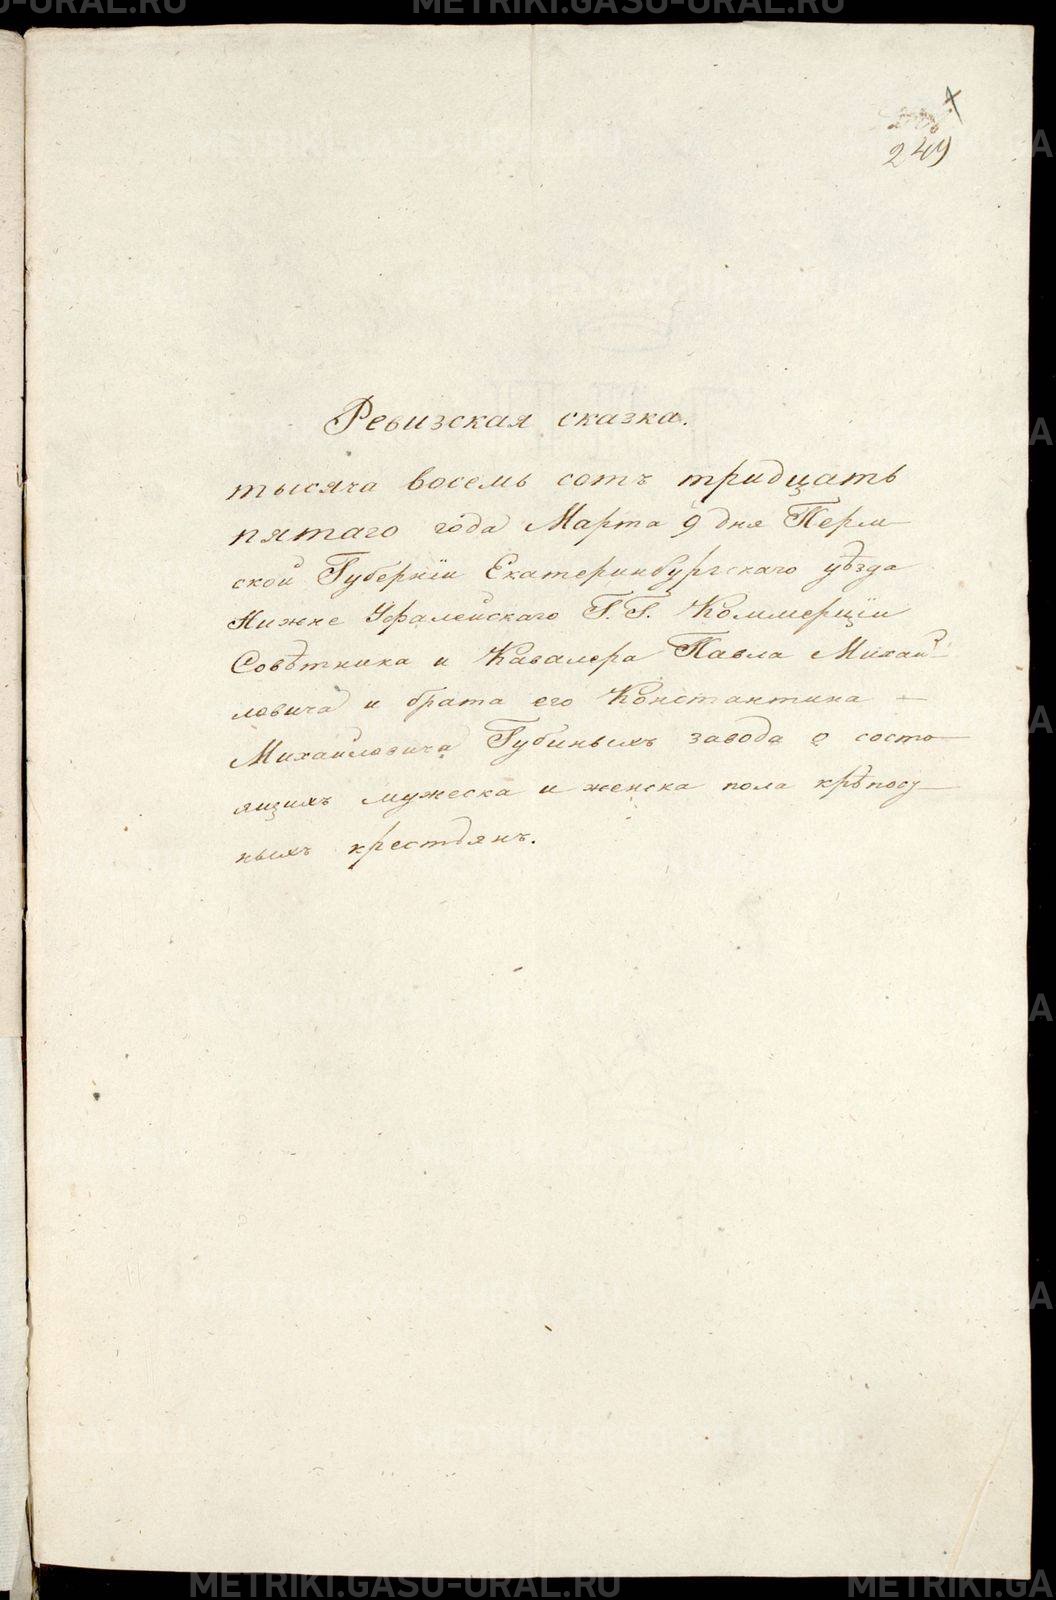 249
Ревизская сказка.
тысяча восемь сотъ тридцать
пятаго года Марта 9 дня Перм-
ской Губерніи Екатеринбургскаго уѣзда
Нижне Уфалейскаго Г.Г. Коммерціи
Совѣтника и Кавалера Павла Михай-
ловича и брата его Константина —
Михайловича Губиныхъ завода о состо-
ящихъ мужеска и женска пола крѣпос-
ныхъ крестьянъ.
METRIKI.GASU-URAL.RU